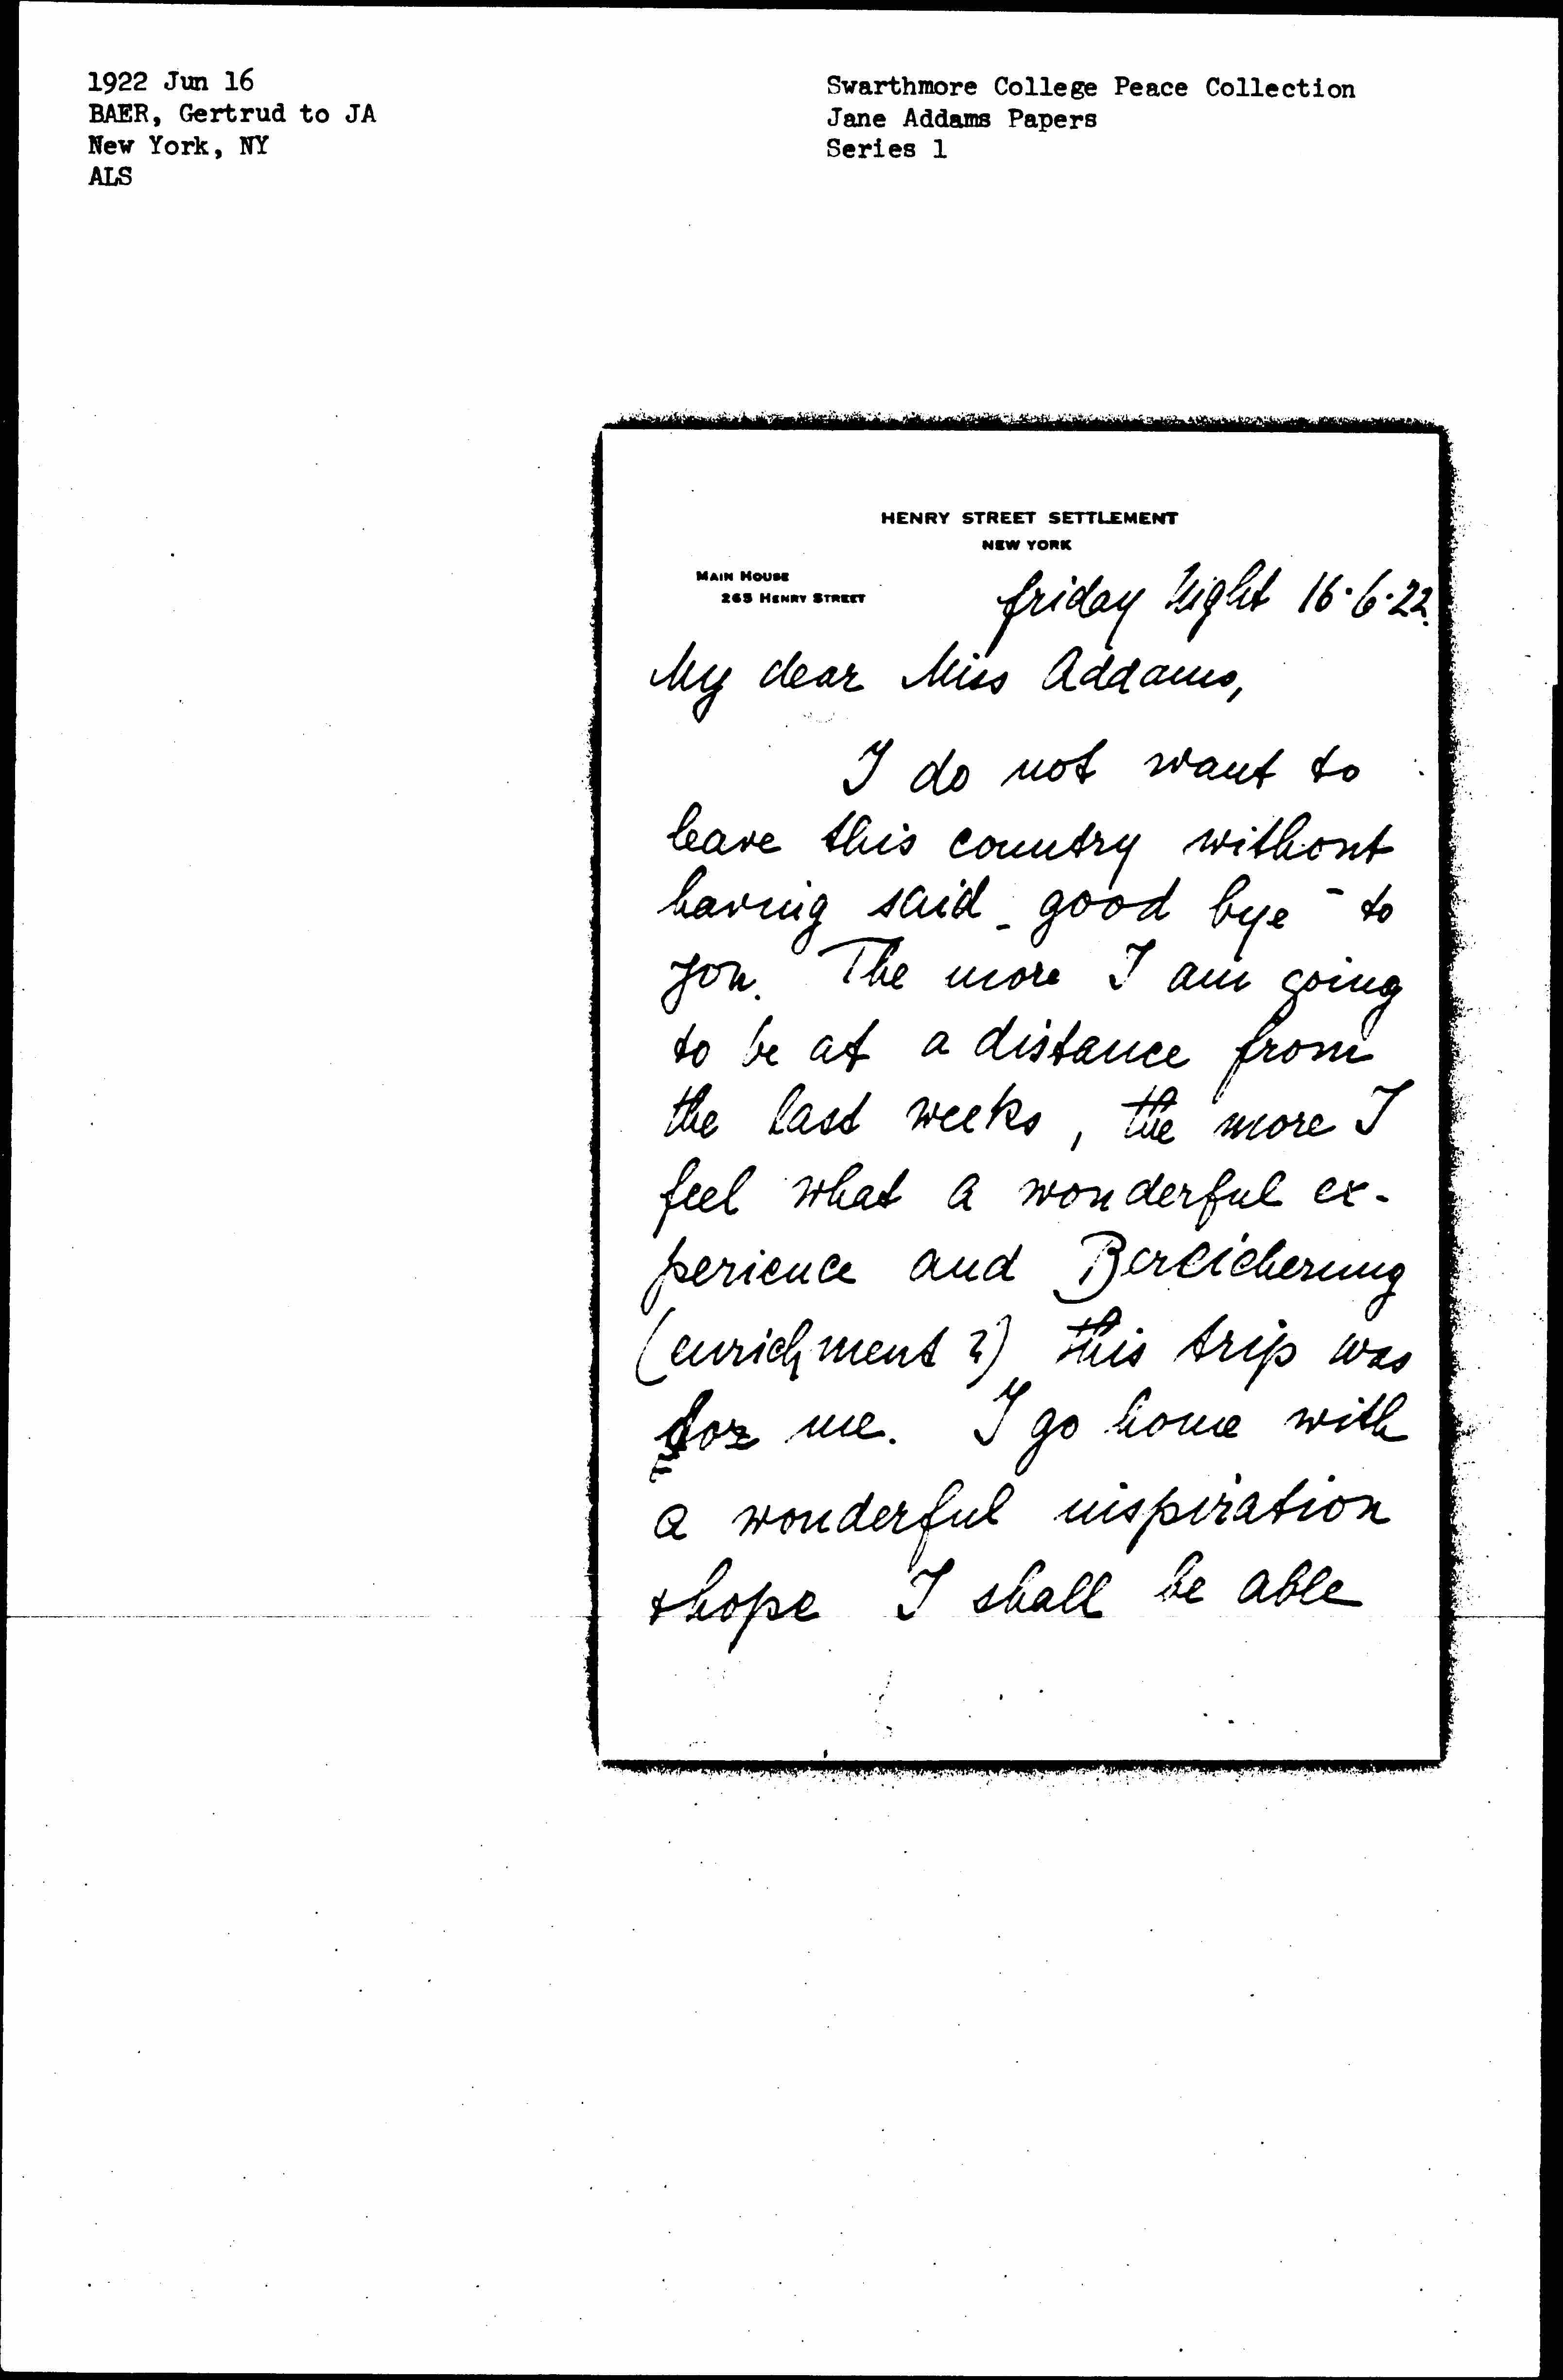 1922 Jun 16
BAER, Gertrud to JA
New York, NY
ALS
Swarthmore College Peace Collection
Jane Addams Papers
Series 1
HENRY STREET SETTLEMENT
NEW YORK
MAIN HOUSE
265 HENRY STREET
friday Night 16.6.22.
My dear Miss Addams,
I do not want to
leave this country without
having said "good bye" to
you. The more I am going
to be at a distance from
the last weeks, the more I
feel what a wonderful ex-
perience and Bereicherung
(enrichment?) this trip was
for me. I go home with
a wonderful inspiration
& hope I shall be able